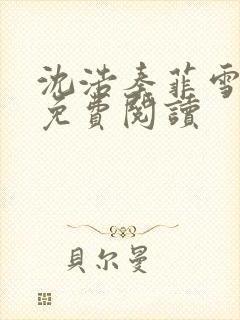 沈浩秦菲雪
免費閱讀
貝尔曼